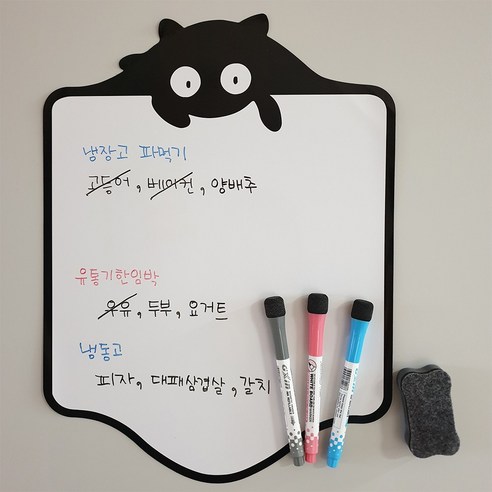 냉장고 파먹기
고등어, 베이컨, 양배추
유통기한임박
우유, 두부, 요거트
냉동고
피자, 대패삼겹살, 갈치
WHITE BOARD